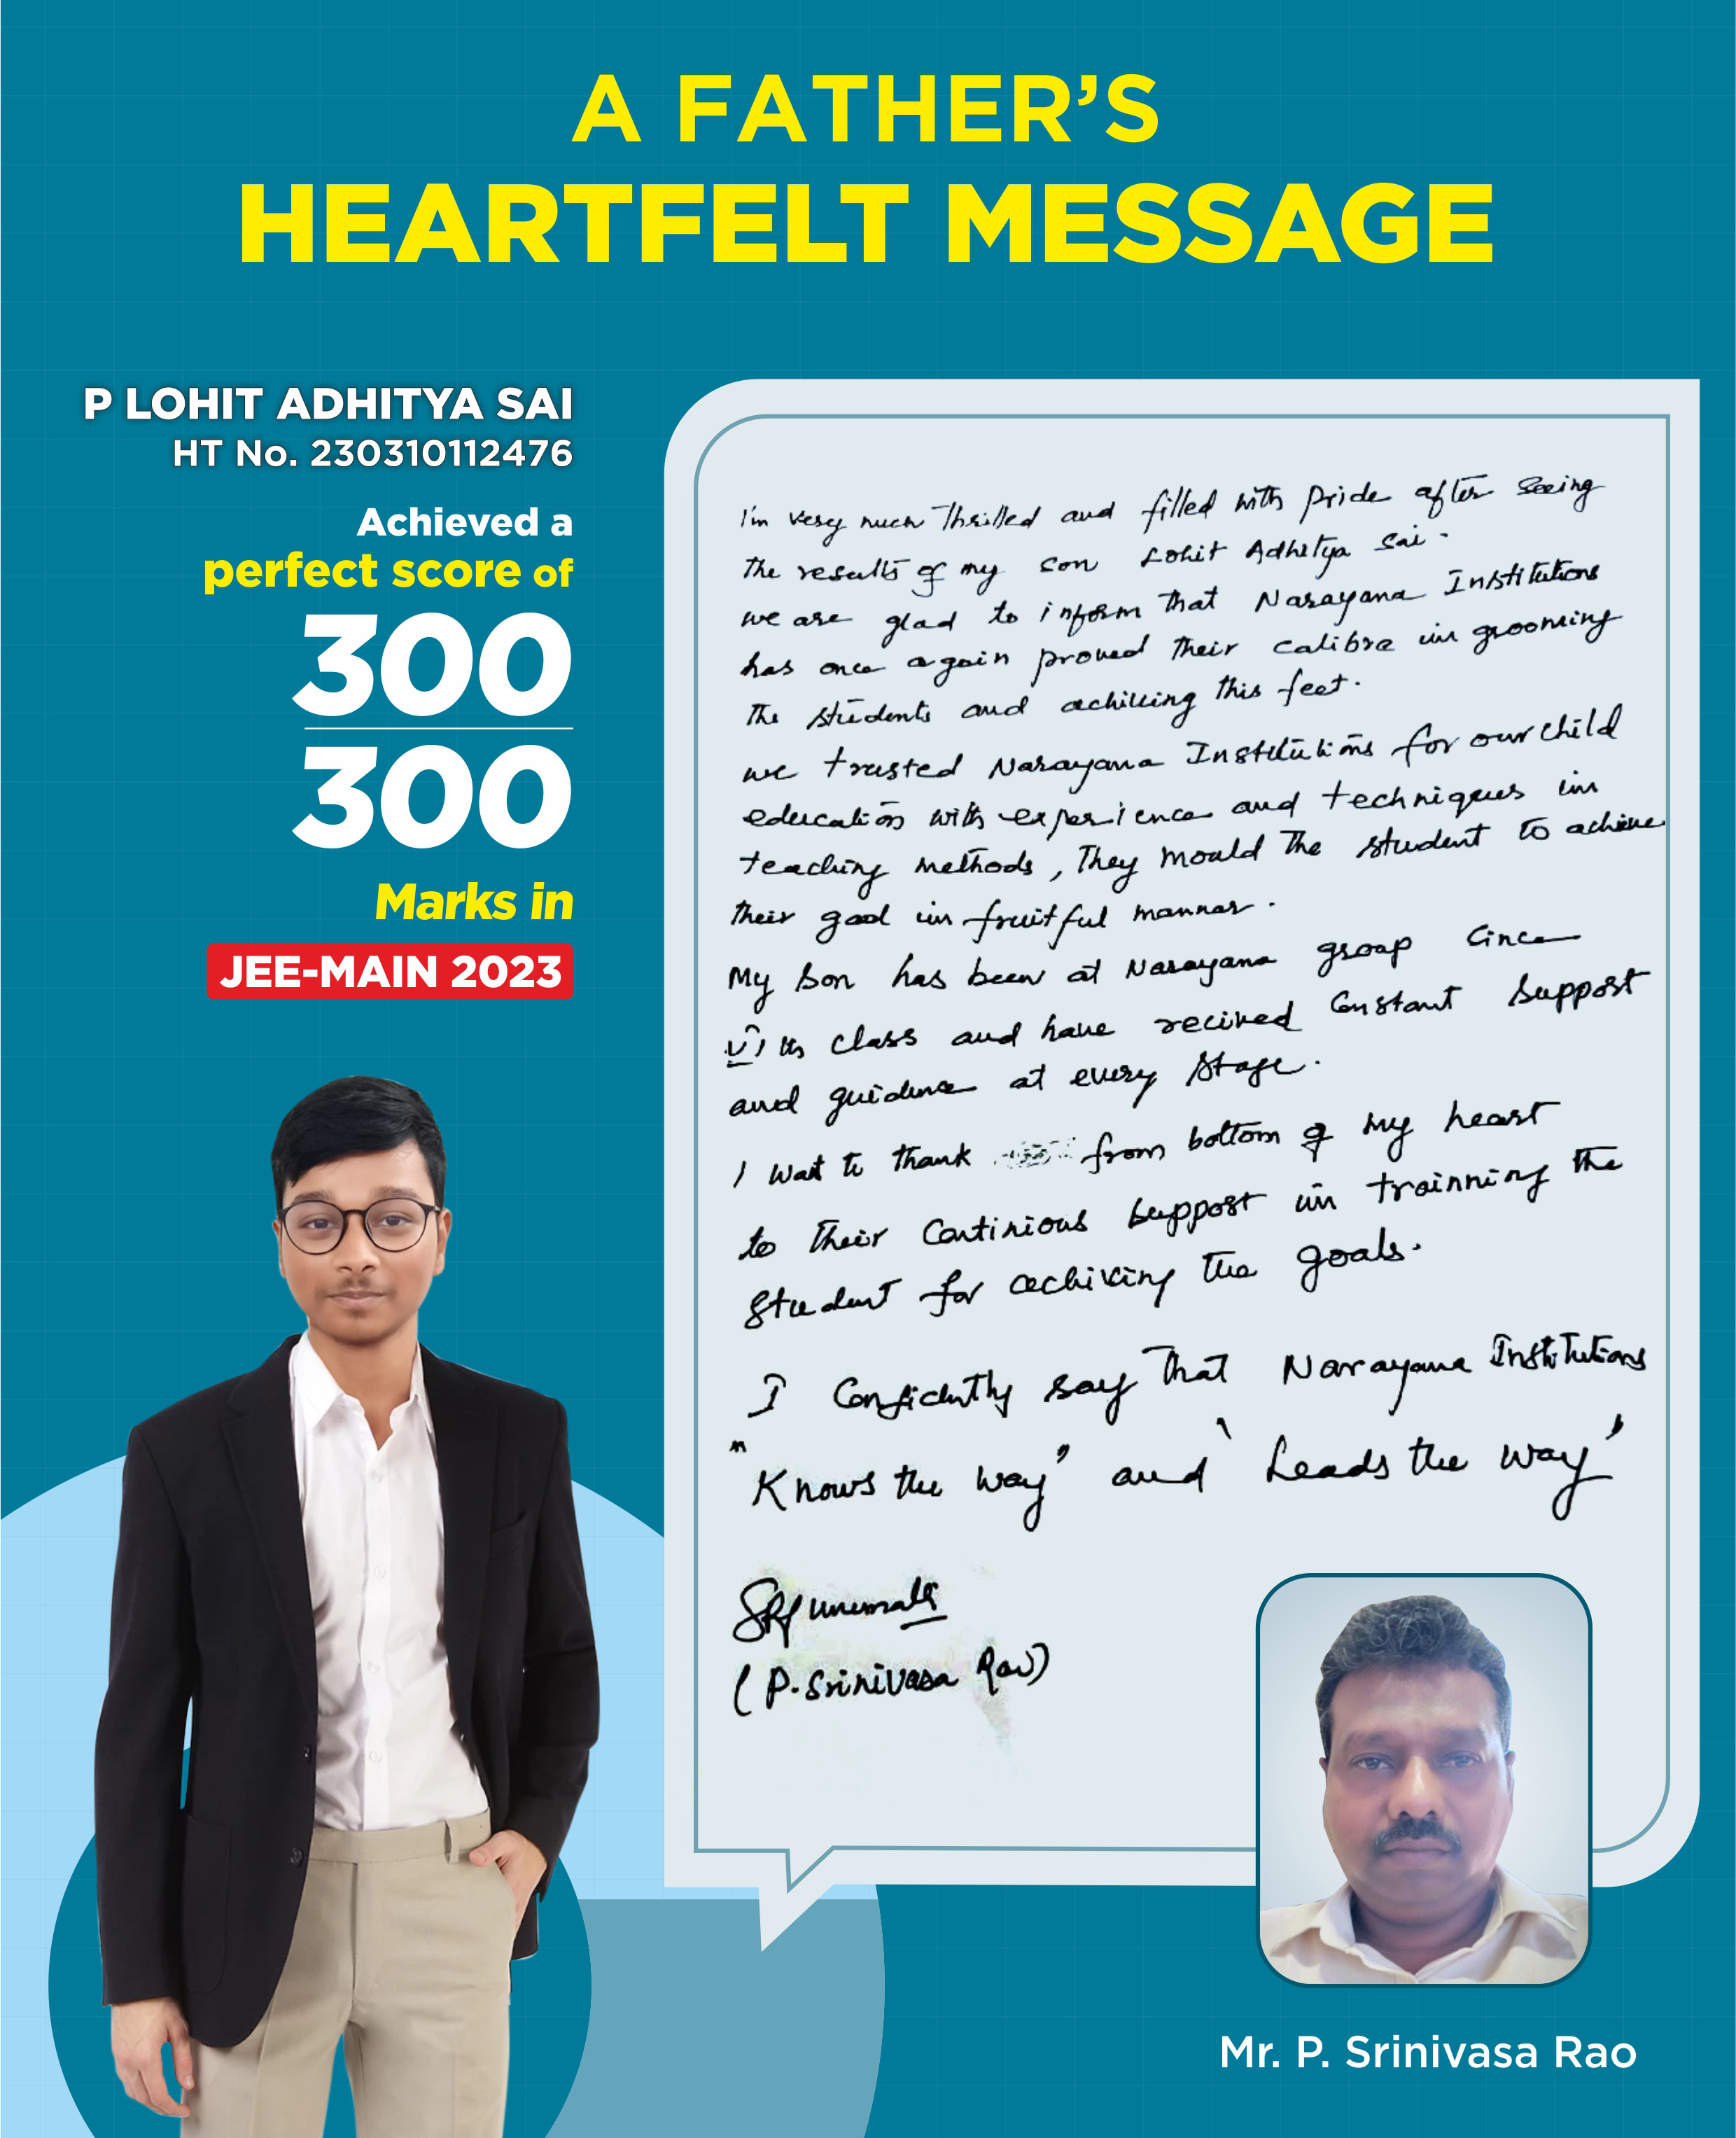 A FATHER'S
HEARTFELT MESSAGE
P LOHIT ADHITYA SAI
HT No. 230310112476
Achieved a
perfect score of
300
300
Marks in
JEE-MAIN 2023
I'm very much Thrilled and filled with Pride after Seeing
The results of my son Lohit Adhitya Sai.
we are glad to inform that Narayana Institutions
has once again proved their calibre in grooming
The students and achiving this feet.
we trusted Narayana Institutions for our child
education with experience and techniques in
teaching methods, They mould The student to achieve
their goal in fruitful mannar.
My son has been at Narayana group Since
class and have recived Constant Support
and guidence at every stage.
I want to thank from bottom of my heart
to their Continious support in trainning the
Student for achiving the goals.
I Confidently say that Narayana Institutions
"Knows the way" and 'Leads the way'
(P. Srinivasa Rao)
Mr. P. Srinivasa Rao